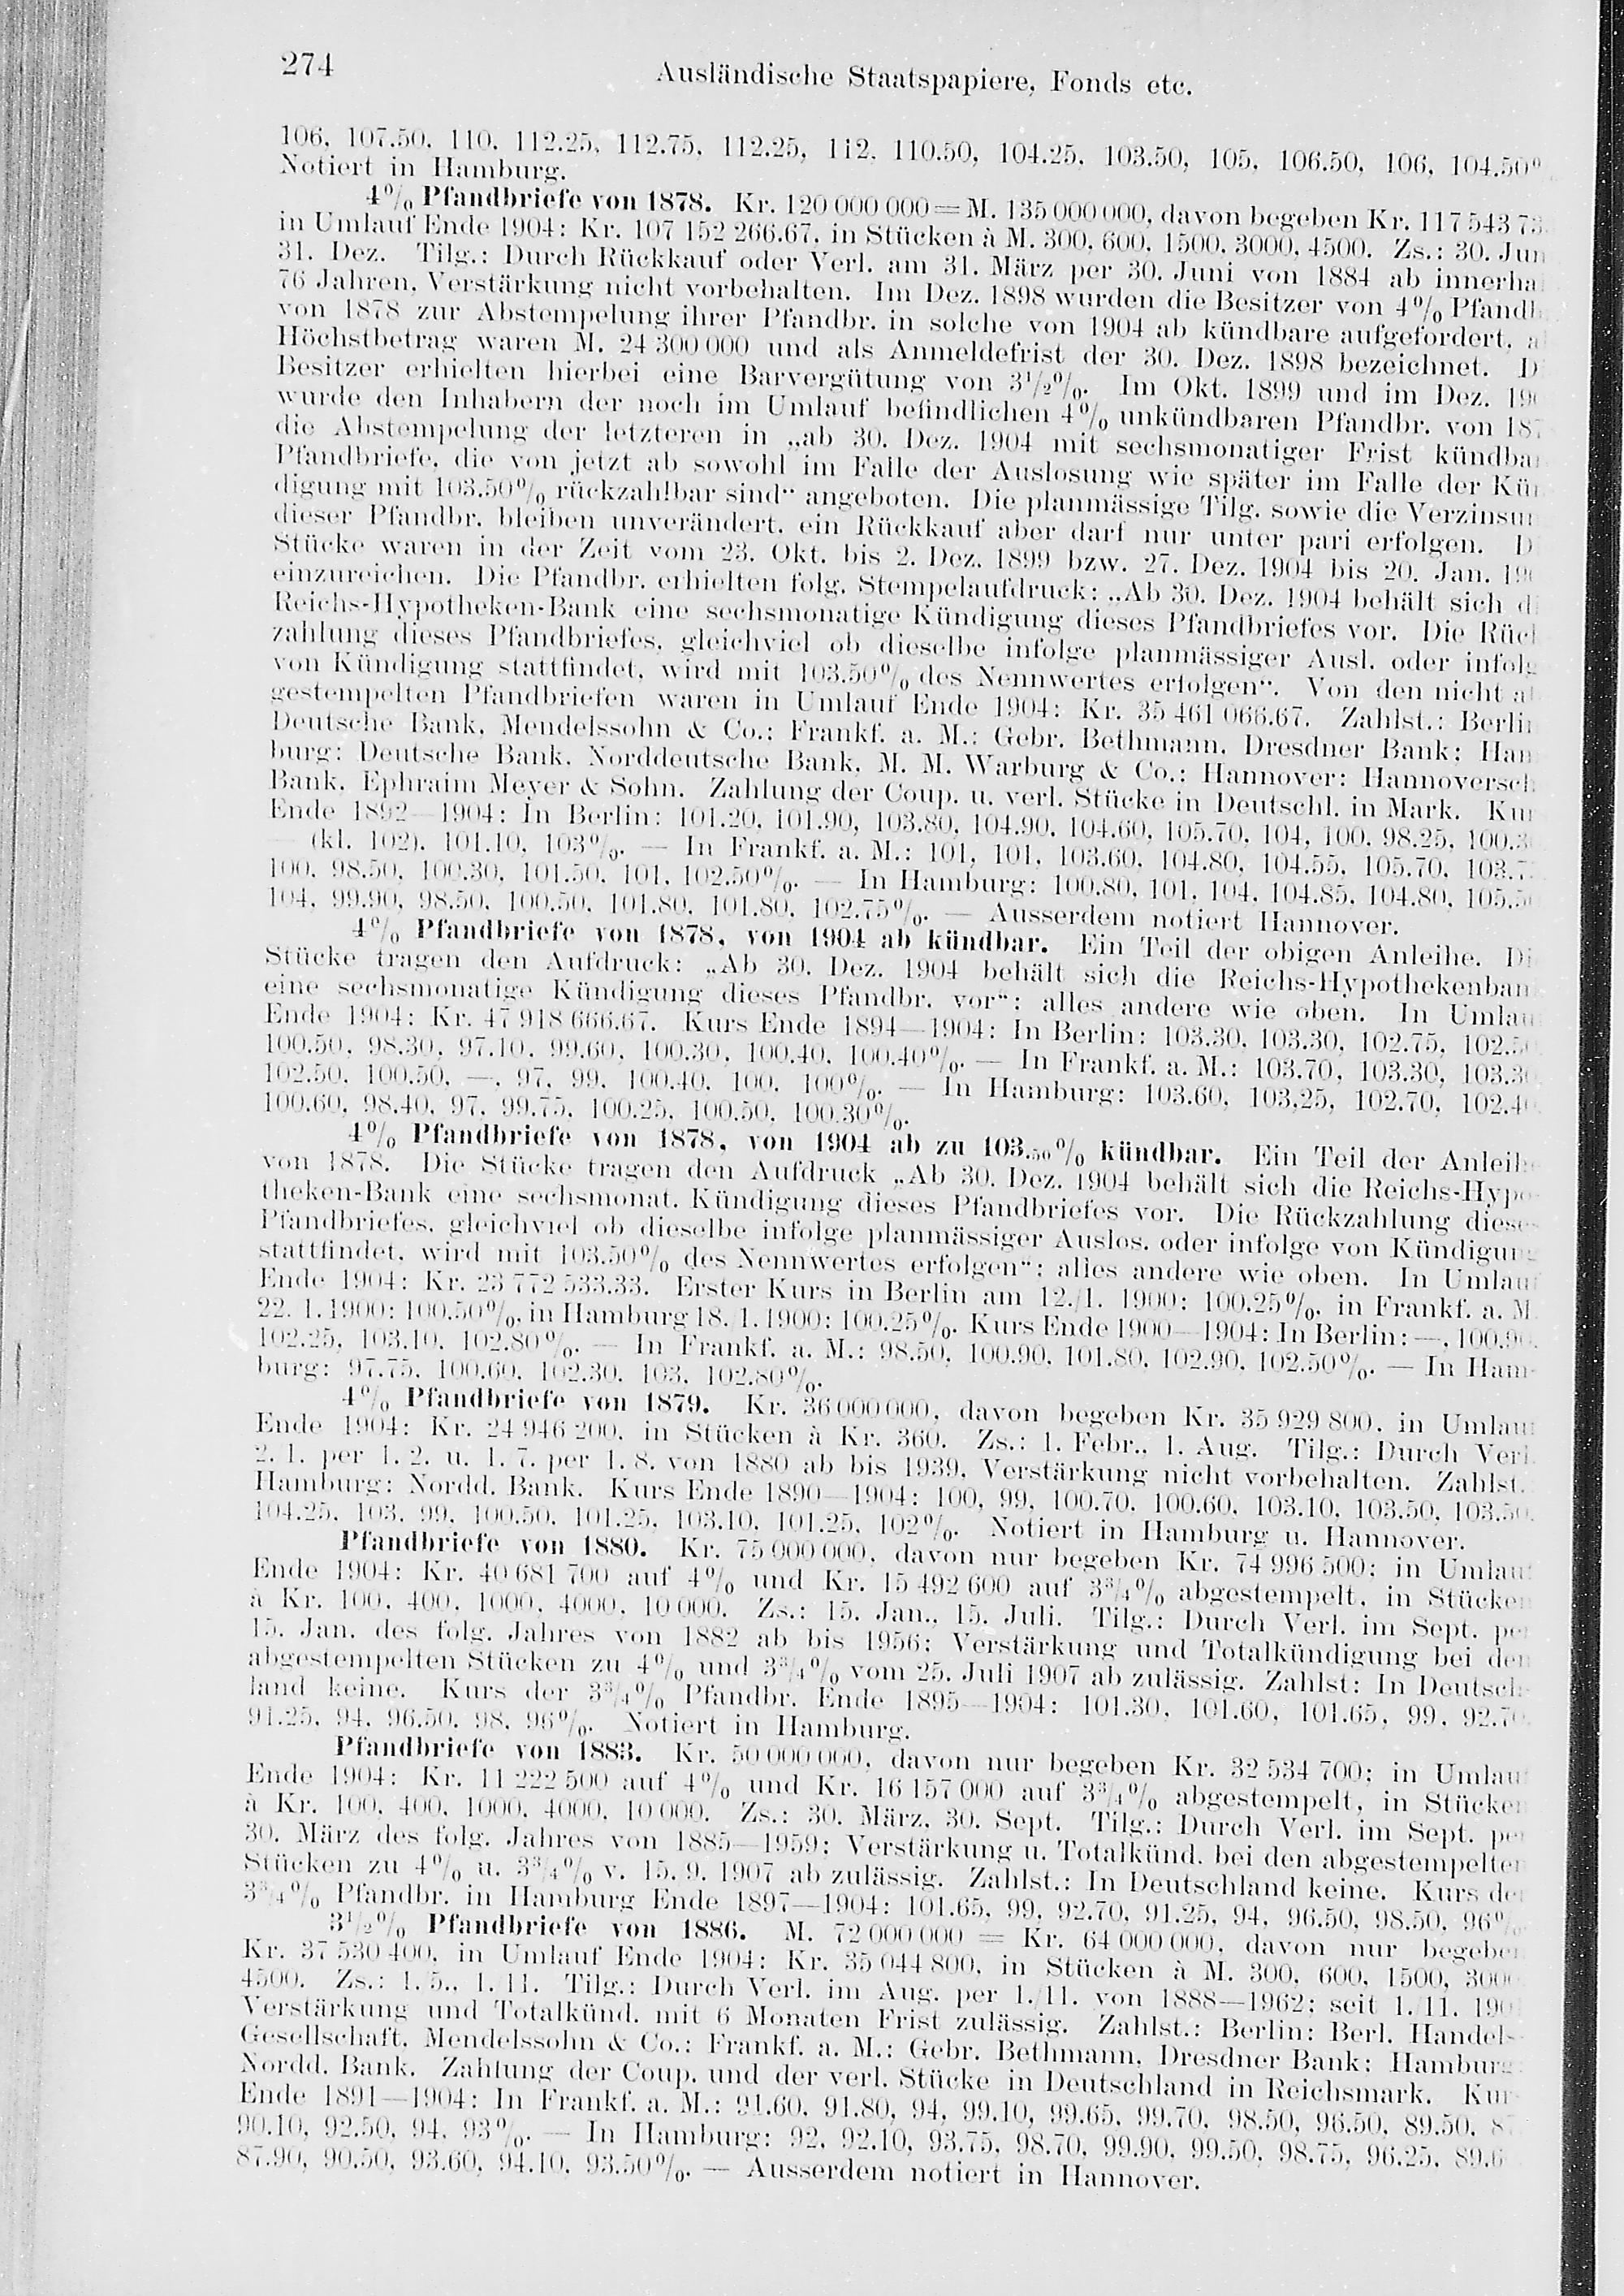 274
Ausländische Staatspapiere, Fonds etc.
106, 107.50, 110, 112.25, 112.75, 112.25, 112, 110.50, 104.25, 103.50, 105, 106.50, 106, 104.50%
Notiert in Hamburg.
4% Pfandbriefe von 1878. Kr. 120 000 000 = M. 135 000 000, davon begeben Kr. 117 543 73
in Umlauf Ende 1904: Kr. 107 152 266.67, in Stücken à M. 300, 600, 1500, 3000, 4500. Zs.: 30. Jun
31. Dez. Tilg.: Durch Rückkauf oder Verl. am 31. März per 30. Juni von 1884 ab innerha
76 Jahren, Verstärkung nicht vorbehalten. Im Dez. 1898 wurden die Besitzer von 4% Pfandb
von 1878 zur Abstempelung ihrer Pfandbr. in solche von 1904 ab kündbare aufgefordert, a
Höchstbetrag waren M. 24 300 000 und als Anmeldefrist der 30. Dez. 1898 bezeichnet. D
Besitzer erhielten hierbei eine Barvergütung von 3½%. Im Okt. 1899 und im Dez. 190
wurde den Inhabern der noch im Umlauf befindlichen 4% unkündbaren Pfandbr. von 187
die Abstempelung der letzteren in „ab 30. Dez. 1904 mit sechsmonatiger Frist kündbar
Pfandbriefe, die von jetzt ab sowohl im Falle der Auslosung wie später im Falle der Kün
digung mit 103.50% rückzahlbar sind“ angeboten. Die planmässige Tilg. sowie die Verzinsun
dieser Pfandbr. bleiben unverändert, ein Rückkauf aber darf nur unter pari erfolgen. D
Stücke waren in der Zeit vom 23. Okt. bis 2. Dez. 1899 bzw. 27. Dez. 1904 bis 20. Jan. 190
einzureichen. Die Pfandbr. erhielten folg. Stempelaufdruck: „Ab 30. Dez. 1904 behält sich di
Reichs-Hypotheken-Bank eine sechsmonatige Kündigung dieses Pfandbriefes vor. Die Rück
zahlung dieses Pfandbriefes, gleichviel ob dieselbe infolge planmässiger Ausl. oder infolg
von Kündigung stattfindet, wird mit 103.50% des Nennwertes erfolgen“. Von den nicht ab
gestempelten Pfandbriefen waren in Umlauf Ende 1904: Kr. 35 461 066.67. Zahlst.: Berlin
Deutsche Bank, Mendelssohn & Co.; Frankf. a. M.: Gebr. Bethmann, Dresdner Bank; Ham
burg: Deutsche Bank, Norddeutsche Bank, M. M. Warburg & Co.; Hannover: Hannoversch
Bank, Ephraim Meyer & Sohn. Zahlung der Coup. u. verl. Stücke in Deutschl. in Mark. Kur
Ende 1892—1904: In Berlin: 101.20, 101.90, 103.80, 104.90, 104.60, 105.70, 104, 100, 98.25, 100.30
— (kl. 102), 101.10, 103%. — In Frankf. a. M.: 101, 101, 103.60, 104.80, 104.55, 105.70, 103.7
100, 98.50, 100.30, 101.50, 101, 102.50%. — In Hamburg: 100.80, 101, 104, 104.85, 104.80, 105.50
104, 99.90, 98.50, 100.50, 101.80, 101.80, 102.75%. — Ausserdem notiert Hannover.
4% Pfandbriefe von 1878, von 1904 ab kündbar. Ein Teil der obigen Anleihe. Di
Stücke tragen den Aufdruck: „Ab 30. Dez. 1904 behält sich die Reichs-Hypothekenban
eine sechsmonatige Kündigung dieses Pfandbr. vor“; alles andere wie oben. In Umlau
Ende 1904: Kr. 47 918 666.67. Kurs Ende 1894—1904: In Berlin: 103.30, 103.30, 102.75, 102.50
100.50, 98.30, 97.10, 99.60, 100.30, 100.40, 100.40%. — In Frankf. a. M.: 103.70, 103.30, 103.30
102.50, 100.50, —, 97, 99, 100.40, 100, 100%. — In Hamburg: 103.60, 103.25, 102.70, 102.40
100.60, 98.40, 97, 99.75, 100.25, 100.50, 100.30%.
4% Pfandbriefe von 1878, von 1904 ab zu 103.50% kündbar. Ein Teil der Anleihe
von 1878. Die Stücke tragen den Aufdruck „Ab 30. Dez. 1904 behält sich die Reichs-Hypo-
theken-Bank eine sechsmonat. Kündigung dieses Pfandbriefes vor. Die Rückzahlung dieses
Pfandbriefes, gleichviel ob dieselbe infolge planmässiger Auslos. oder infolge von Kündigung
stattfindet, wird mit 103.50% des Nennwertes erfolgen“; alles andere wie oben. In Umlauf
Ende 1904: Kr. 23 772 533.33. Erster Kurs in Berlin am 12./1. 1900: 100.25%, in Frankf. a. M.
22. 1. 1900: 100.50%, in Hamburg 18. 1. 1900: 100.25%. Kurs Ende 1900—1904: In Berlin: —, 100.90,
102.25, 103.10, 102.80%. — In Frankf. a. M.: 98.50, 100.90, 101.80, 102.90, 102.50%. — In Ham-
burg: 97.75, 100.60, 102.30, 103, 102.80%.
4% Pfandbriefe von 1879. Kr. 36 000 000, davon begeben Kr. 35 929 800, in Umlauf
Ende 1904: Kr. 24 946 200, in Stücken à Kr. 360. Zs.: 1. Febr., 1. Aug. Tilg.: Durch Verl.
2. 1. per 1. 2. u. 1. 7. per 1. 8. von 1880 ab bis 1939, Verstärkung nicht vorbehalten. Zahlst.
Hamburg: Nordd. Bank. Kurs Ende 1890—1904: 100, 99, 100.70, 100.60, 103.10, 103.50, 103.50,
104.25, 103, 99, 100.50, 101.25, 103.10, 101.25, 102%. Notiert in Hamburg u. Hannover.
Pfandbriefe von 1880. Kr. 75 000 000, davon nur begeben Kr. 74 996 500; in Umlauf
Ende 1904: Kr. 40 681 700 auf 4% und Kr. 15 492 600 auf 3¾% abgestempelt, in Stücken
à Kr. 100, 400, 1000, 4000, 10 000. Zs.: 15. Jan., 15. Juli. Tilg.: Durch Verl. im Sept. per
15. Jan. des folg. Jahres von 1882 ab bis 1956; Verstärkung und Totalkündigung bei den
abgestempelten Stücken zu 4% und 3¾% vom 25. Juli 1907 ab zulässig. Zahlst: In Deutsch-
land keine. Kurs der 3¾% Pfandbr. Ende 1895—1904: 101.30, 101.60, 101.65, 99, 92.70,
91.25, 94, 96.50, 98, 96%. Notiert in Hamburg.
Pfandbriefe von 1883. Kr. 50 000 000, davon nur begeben Kr. 32 534 700; in Umlauf
Ende 1904: Kr. 11 222 500 auf 4% und Kr. 16 157 000 auf 3¾% abgestempelt, in Stücken
à Kr. 100, 400, 1000, 4000, 10 000. Zs.: 30. März, 30. Sept. Tilg.: Durch Verl. im Sept. per
30. März des folg. Jahres von 1885—1959; Verstärkung u. Totalkünd. bei den abgestempelten
Stücken zu 4% u. 3¾% v. 15. 9. 1907 ab zulässig. Zahlst.: In Deutschland keine. Kurs der
3¾% Pfandbr. in Hamburg Ende 1897—1904: 101.65, 99, 92.70, 91.25, 94, 96.50, 98.50, 96%
3½% Pfandbriefe von 1886. M. 72 000 000 = Kr. 64 000 000, davon nur begeben
Kr. 37 530 400, in Umlauf Ende 1904: Kr. 35 044 800, in Stücken à M. 300, 600, 1500, 3000
4500. Zs.: 1. 5., 1. 11. Tilg.: Durch Verl. im Aug. per 1./11. von 1888—1962; seit 1./11. 190
Verstärkung und Totalkünd. mit 6 Monaten Frist zulässig. Zahlst.: Berlin: Berl. Handels-
Gesellschaft, Mendelssohn & Co.; Frankf. a. M.: Gebr. Bethmann, Dresdner Bank; Hamburg:
Nordd. Bank. Zahlung der Coup. und der verl. Stücke in Deutschland in Reichsmark. Kur
Ende 1891—1904: In Frankf. a. M.: 91.60, 91.80, 94, 99.10, 99.65, 99.70, 98.50, 96.50, 89.50, 87
90.10, 92.50, 94, 93%. — In Hamburg: 92, 92.10, 93.75, 98.70, 99.90, 99.50, 98.75, 96.25, 89.6
87.90, 90.50, 93.60, 94.10, 93.50%. — Ausserdem notiert in Hannover.